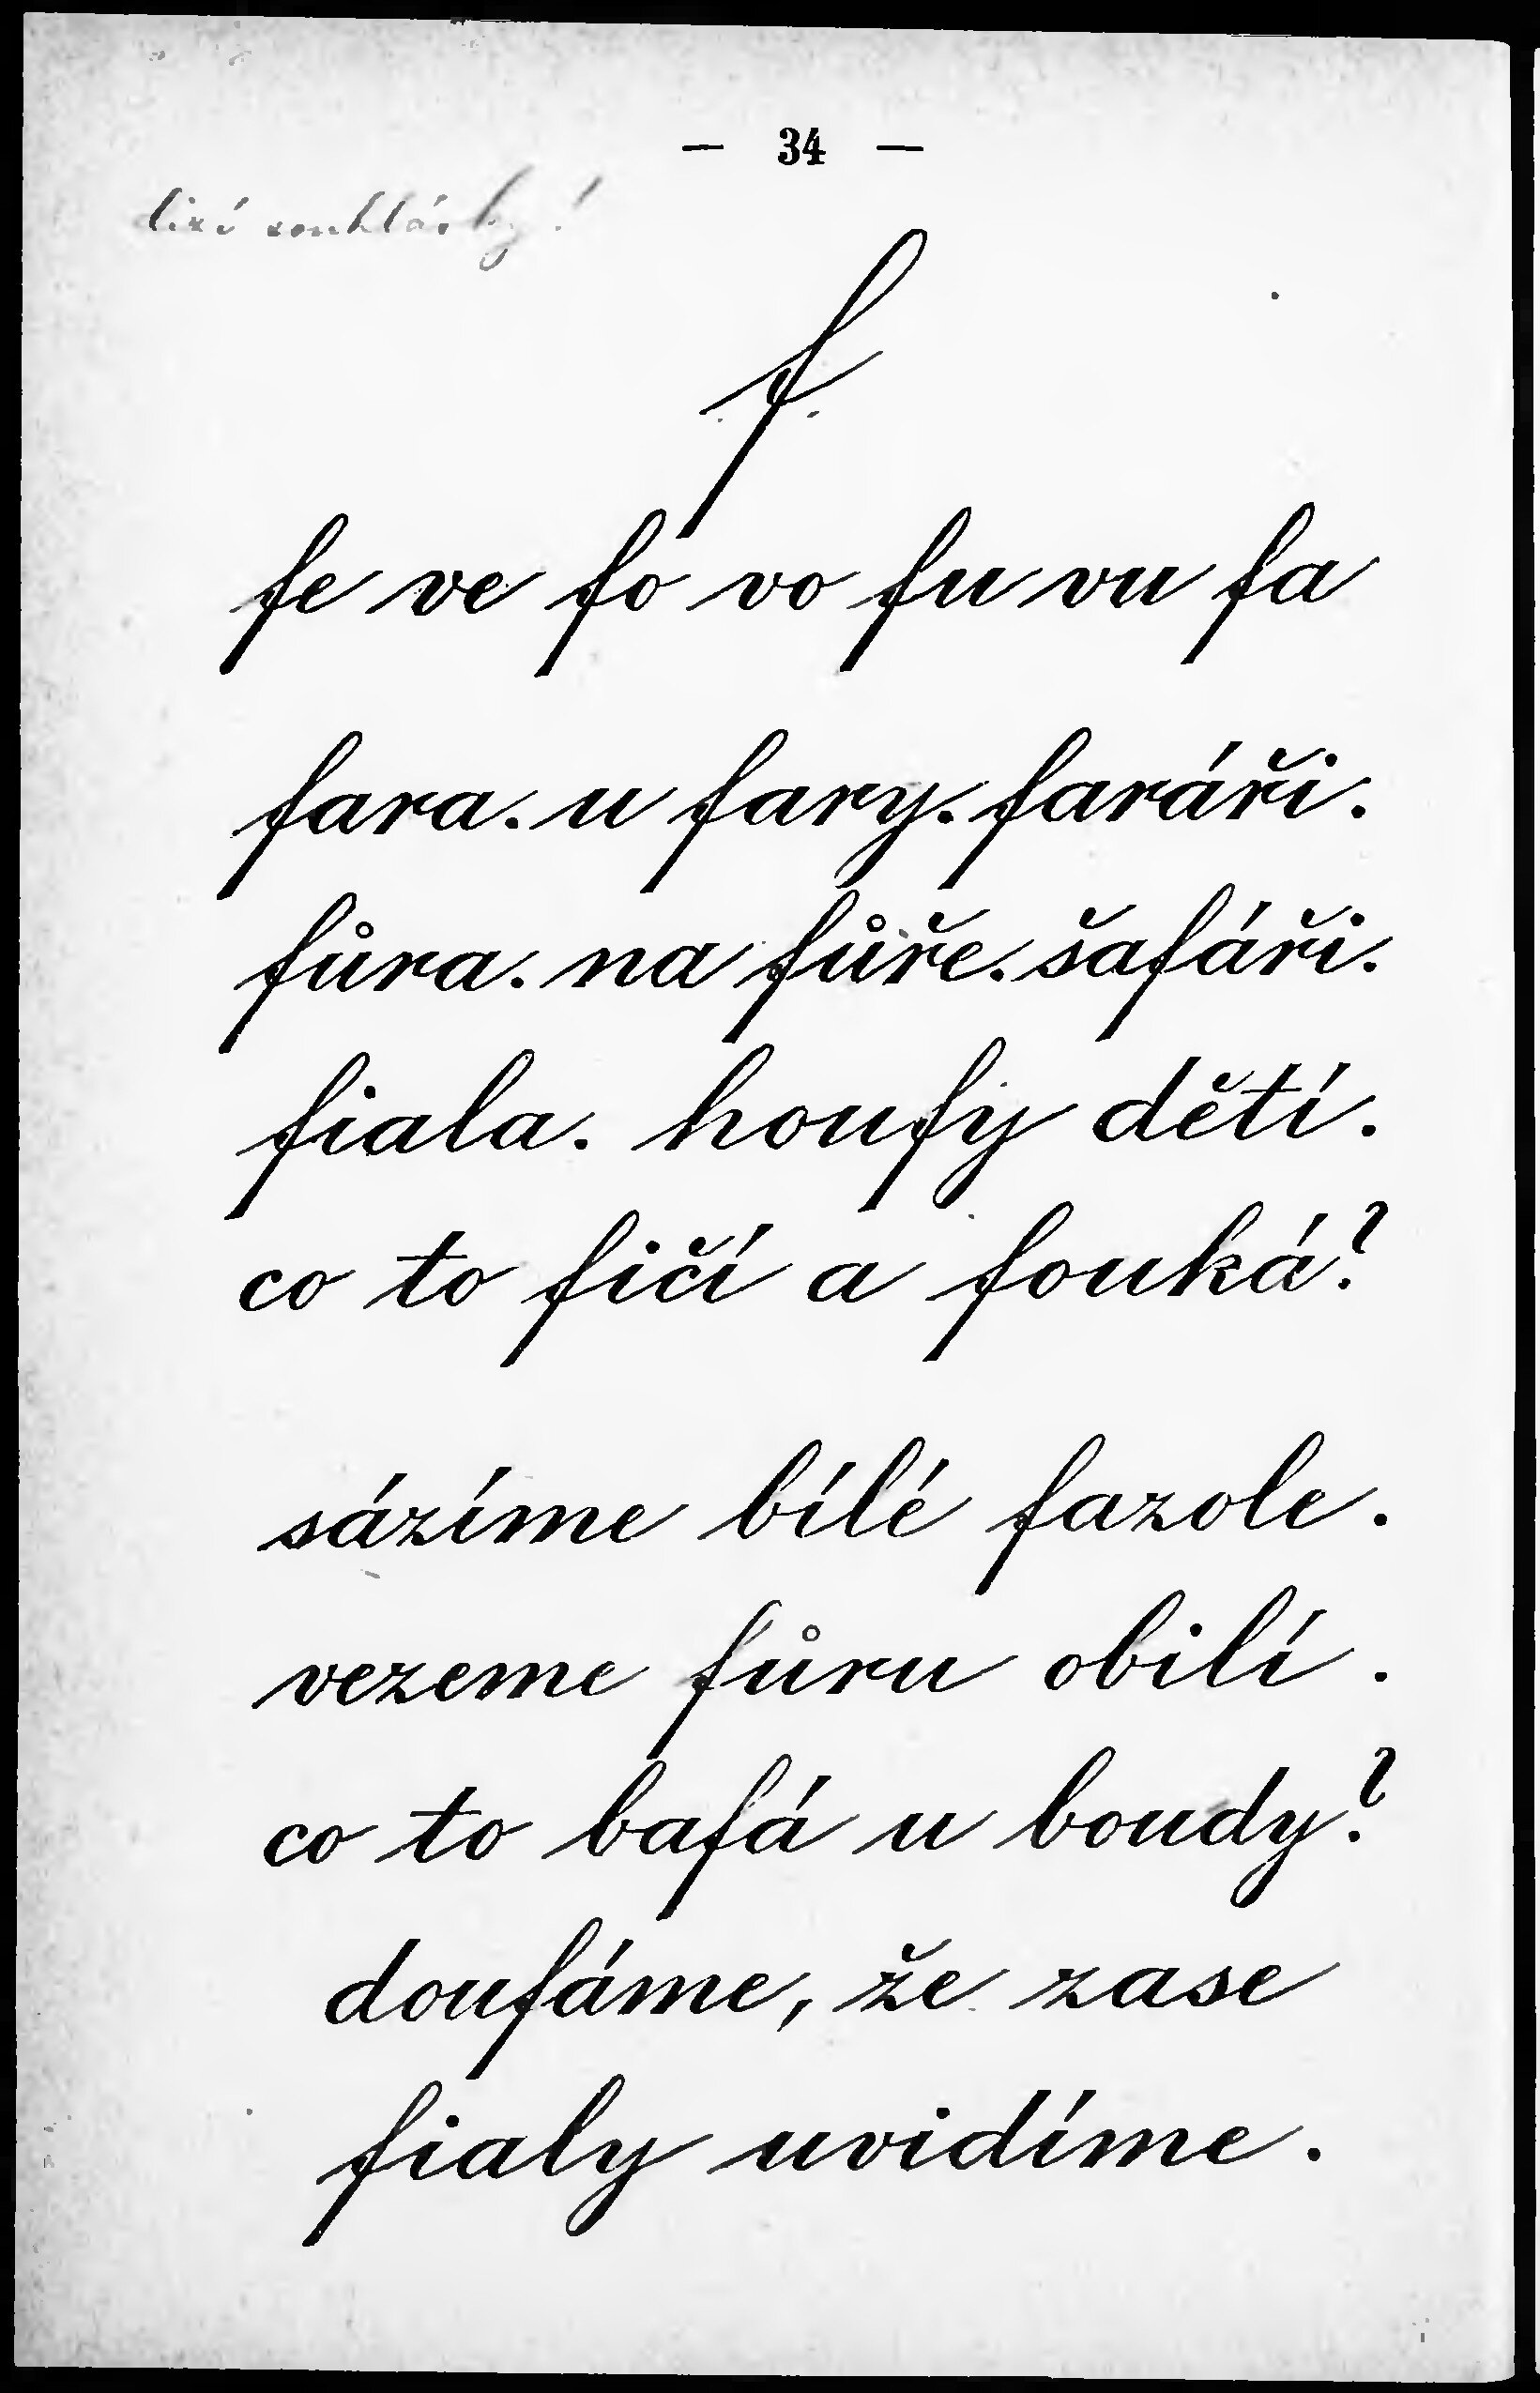 — 34 —
souhlásky!
f
fe ve fo vo fu vu fa
fara. u fary. faráři.
fůra. na fůře. šafáři.
fiala. houfy dětí.
co to fičí a fouká?
sázíme bílé fazole.
vezeme fůru obilí.
co to bafá u boudy?
doufáme, že zase
fialy uvidíme.